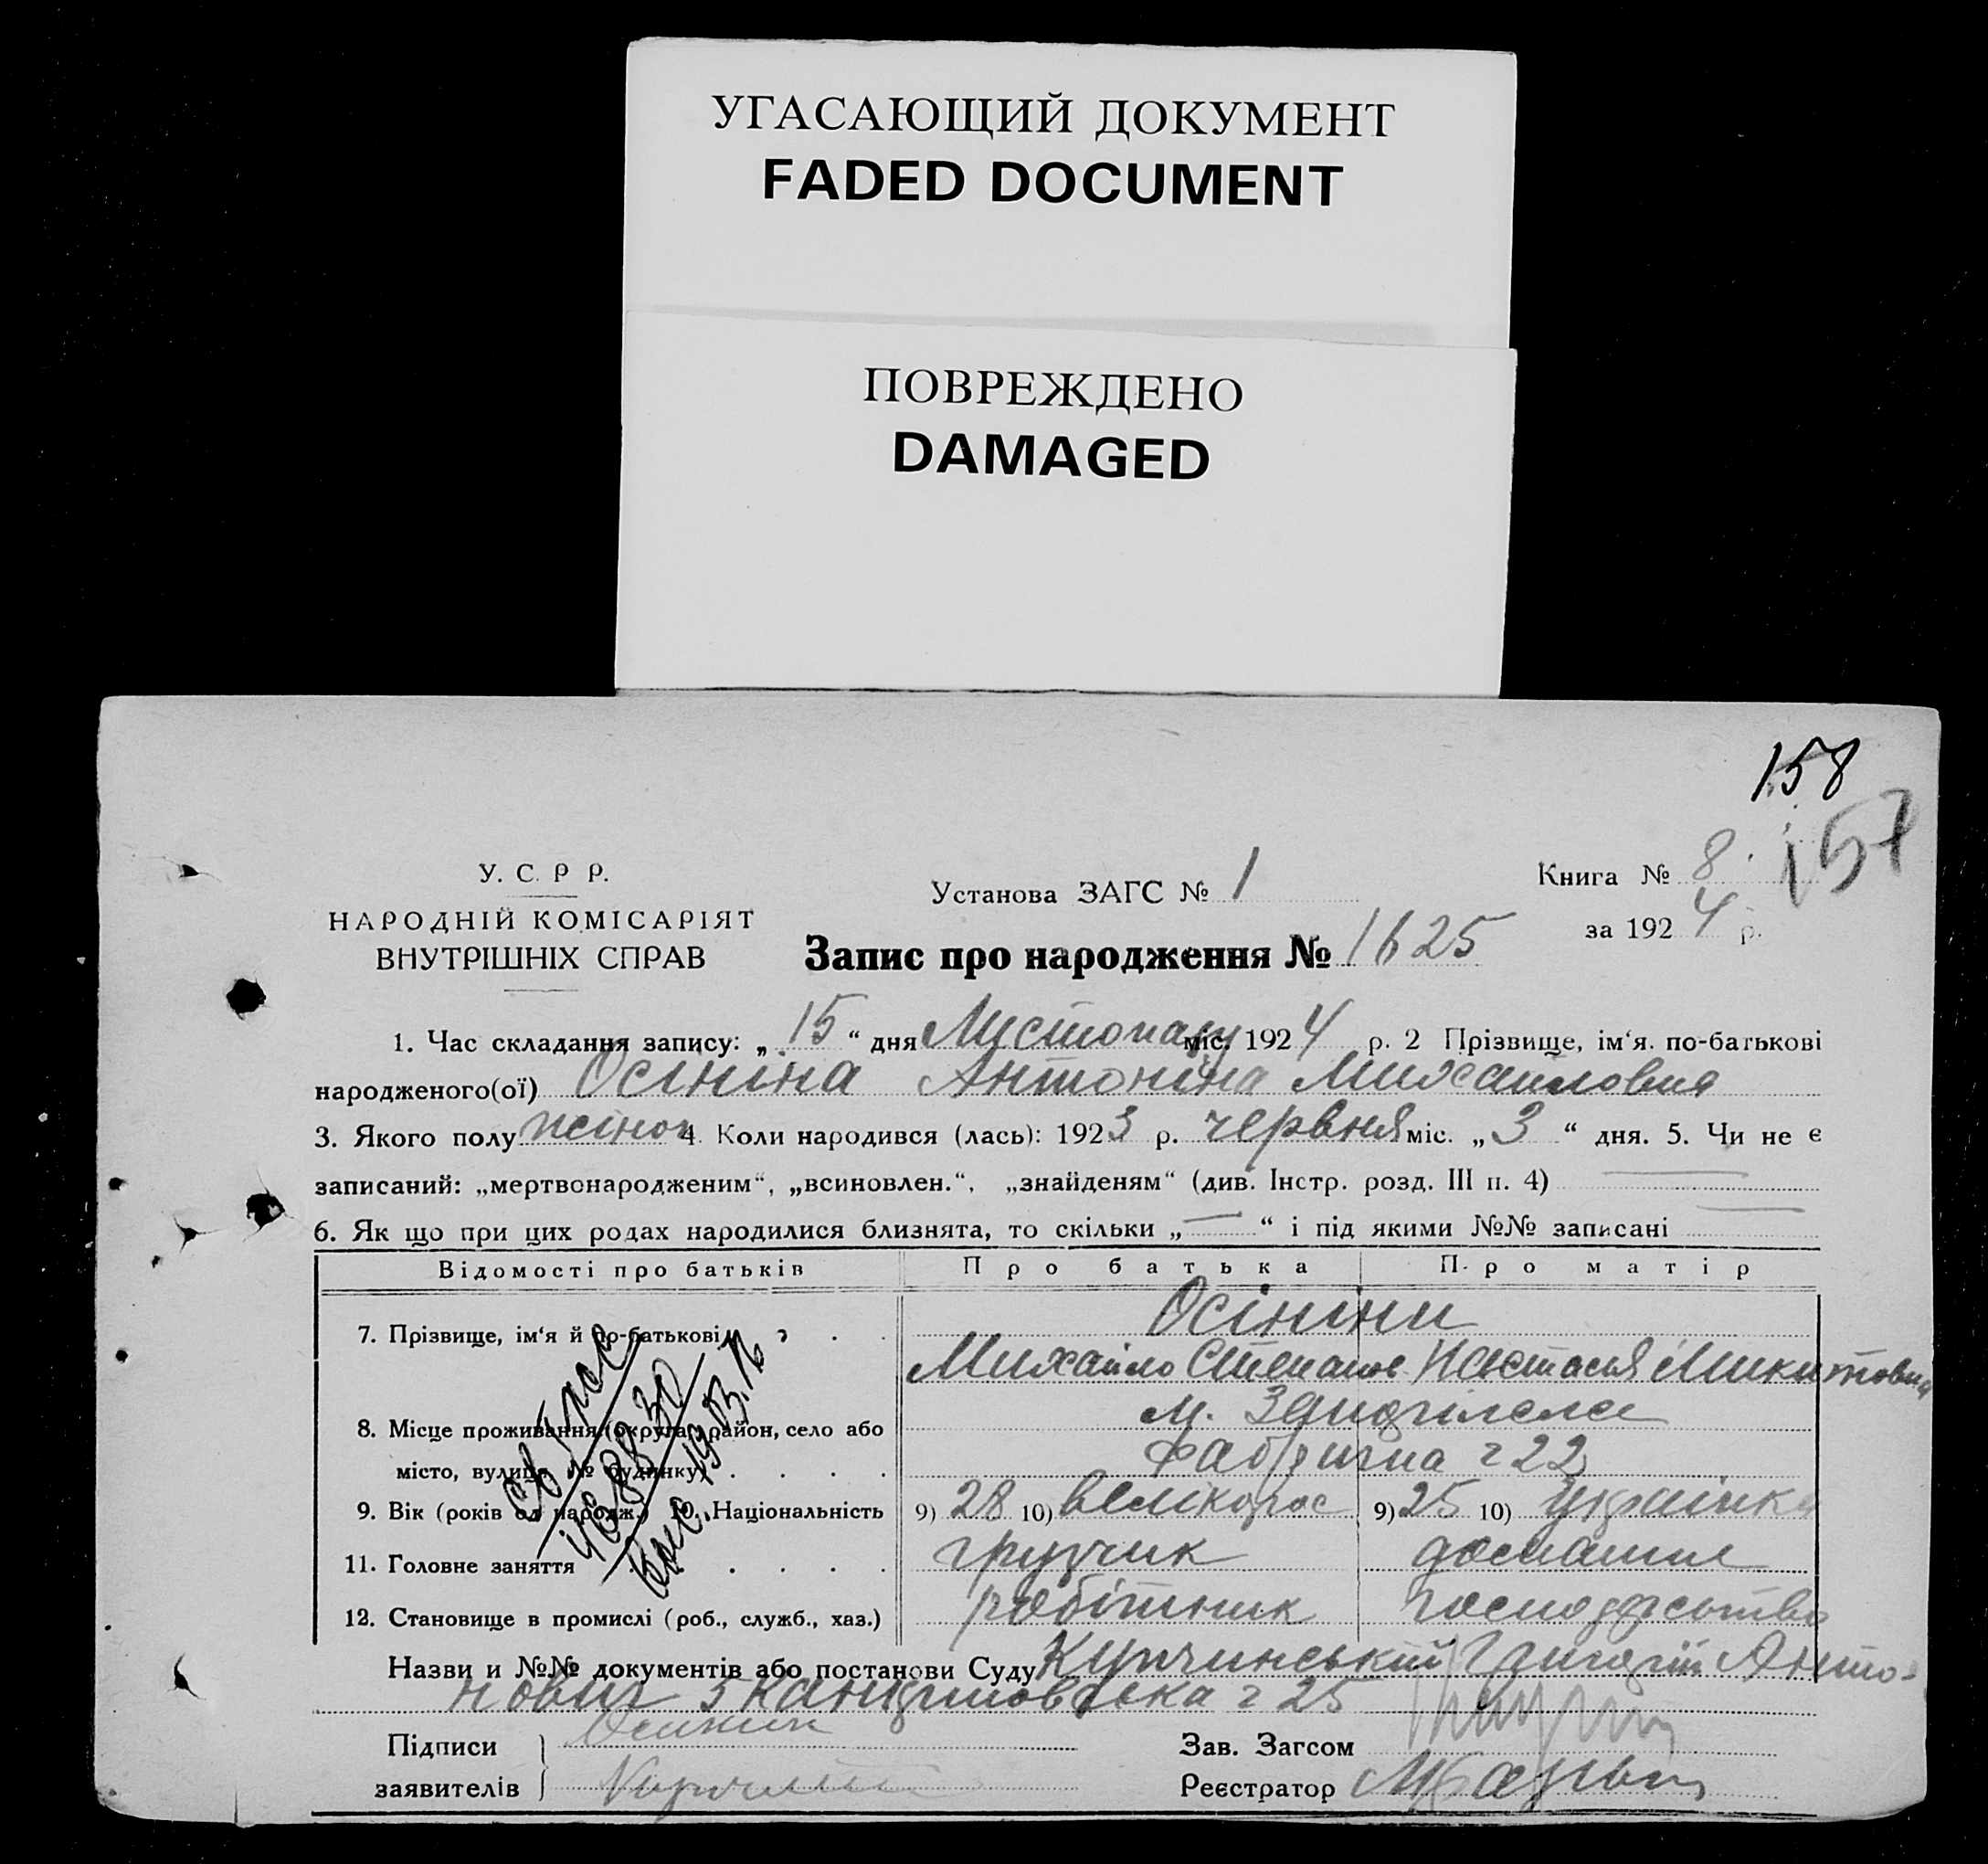 УГАСАЮЩИЙ ДОКУМЕНТ
FADED DOCUMENT
ПОВРЕЖДЕНО
DAMAGED
158
157
У. С. Р Р.
НАРОДНІЙ КОМІСАРІЯТ
ВНУТРІШНІХ СПРАВ
Установа ЗАГС № 1
Книга № 8
за 1924 р.
Запис про народження № 1625
1. Час складання запису: „ 15 “ дня Листопаду міс. 1924 р. 2 Прізвище, ім‘я. по-батькові
народженого(ої) Осініна Антоніна Михайловна
3. Якого полу жіноч 4. Коли народився (лась): 1923 р. червня міс. „ 3 “ дня. 5. Чи не є
записаний: „мертвонародженим“, „всиновлен.“, „знайденям“ (див. Інстр. розд. III п. 4)
6. Як що при цих родах народилися близнята, то скільки „ — “ і під якими №№ записані
Відомості про батьків Про батька Про матір
7. Прізвище, ім‘я й по-батькові Осініни
Михайло Степанов Настасья Микитовна
8. Місце проживання (округа, район, село або
місто, вулиця, № будинку) Фабрична 22
9. Вік (років од народж.) 10. Національність 9) 28 10) великорос 9) 25 10) Українка
11. Головне заняття грузчик домашнє
12. Становище в промислі (роб., служб., хаз.) робітник господарство
Назви и №№ документів або постанови Суду Купчинський Григорій Анто-
нович 25
Підписи
заявителів
Осинин
Зав. Загсом
Реєстратор